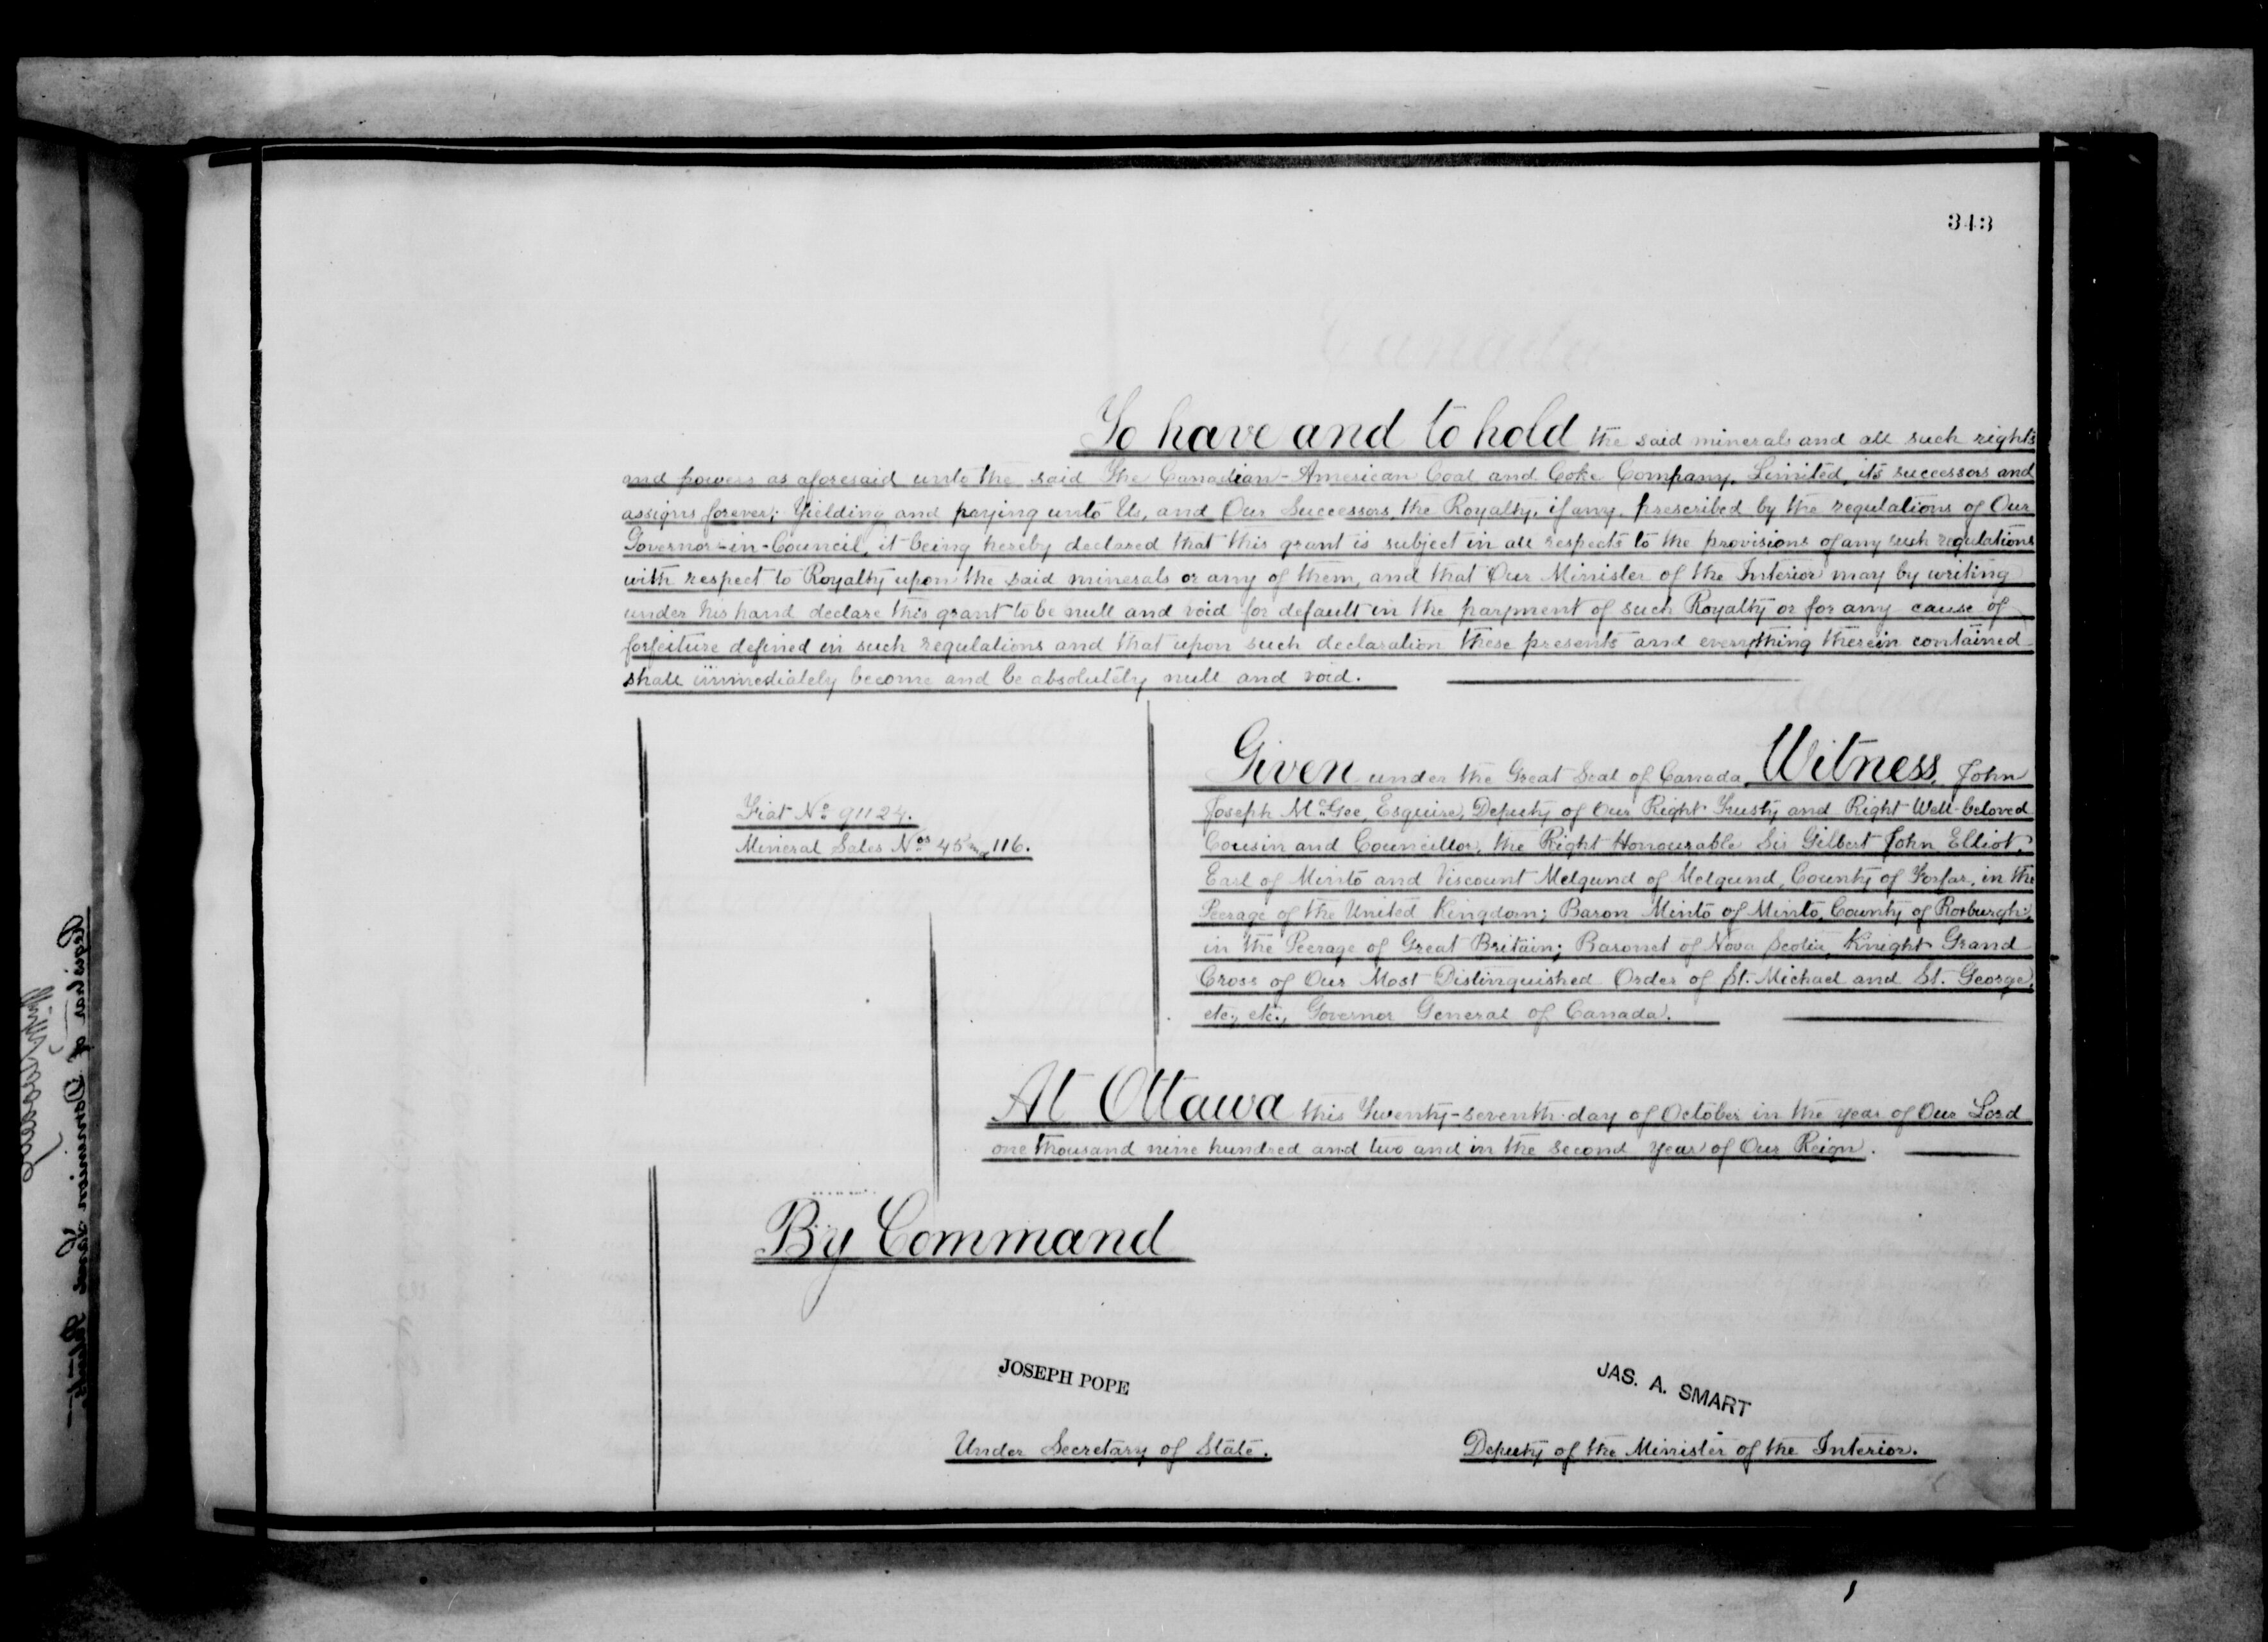 343
To have and to hold the said minerals and all such rights
and powers as aforesaid unto the said The Canadian-American Coal and Coke Company, Limited, its successors and
assigns forever; Yielding and paying unto Us, and Our Successors, the Royalty, if any, prescribed by the regulations of Our
Governor-in-Council, it being hereby declared that this grant is subject in all respects to the provisions of any such regulations
with respect to Royalty upon the said minerals or any of them, and that Our Minister of the Interior may by writing
under his hand declare this grant to be null and void for default in the payment of such Royalty or for any cause of
forfeiture defined in such regulations and that upon such declaration these presents and everything therein contained
shall immediately become and be absolutely null and void.
Given under the Great Seal of Canada, Witness, John
Joseph McGee, Esquire, Deputy of Our Right Trusty and Right Well-beloved
Cousin and Councillor, the Right Honourable Sir Gilbert John Elliot,
Earl of Minto and Viscount Melgund of Melgund, County of Forfar, in the
Peerage of the United Kingdom; Baron Minto of Minto, County of Roxburgh,
in the Peerage of Great Britain; Baronet of Nova Scotia, Knight Grand
Cross of Our Most Distinguished Order of St. Michael and St. George,
etc., etc., Governor General of Canada.
Fiat No 91124.
Mineral Sales Nos 45 and 116.
At Ottawa this Twenty-seventh day of October in the year of Our Lord
one thousand nine hundred and two and in the second year of Our Reign.
By Command
JOSEPH POPE
Under Secretary of State.
JAS. A. SMART
Deputy of the Minister of the Interior.
Registrar of Dominion Land Patents